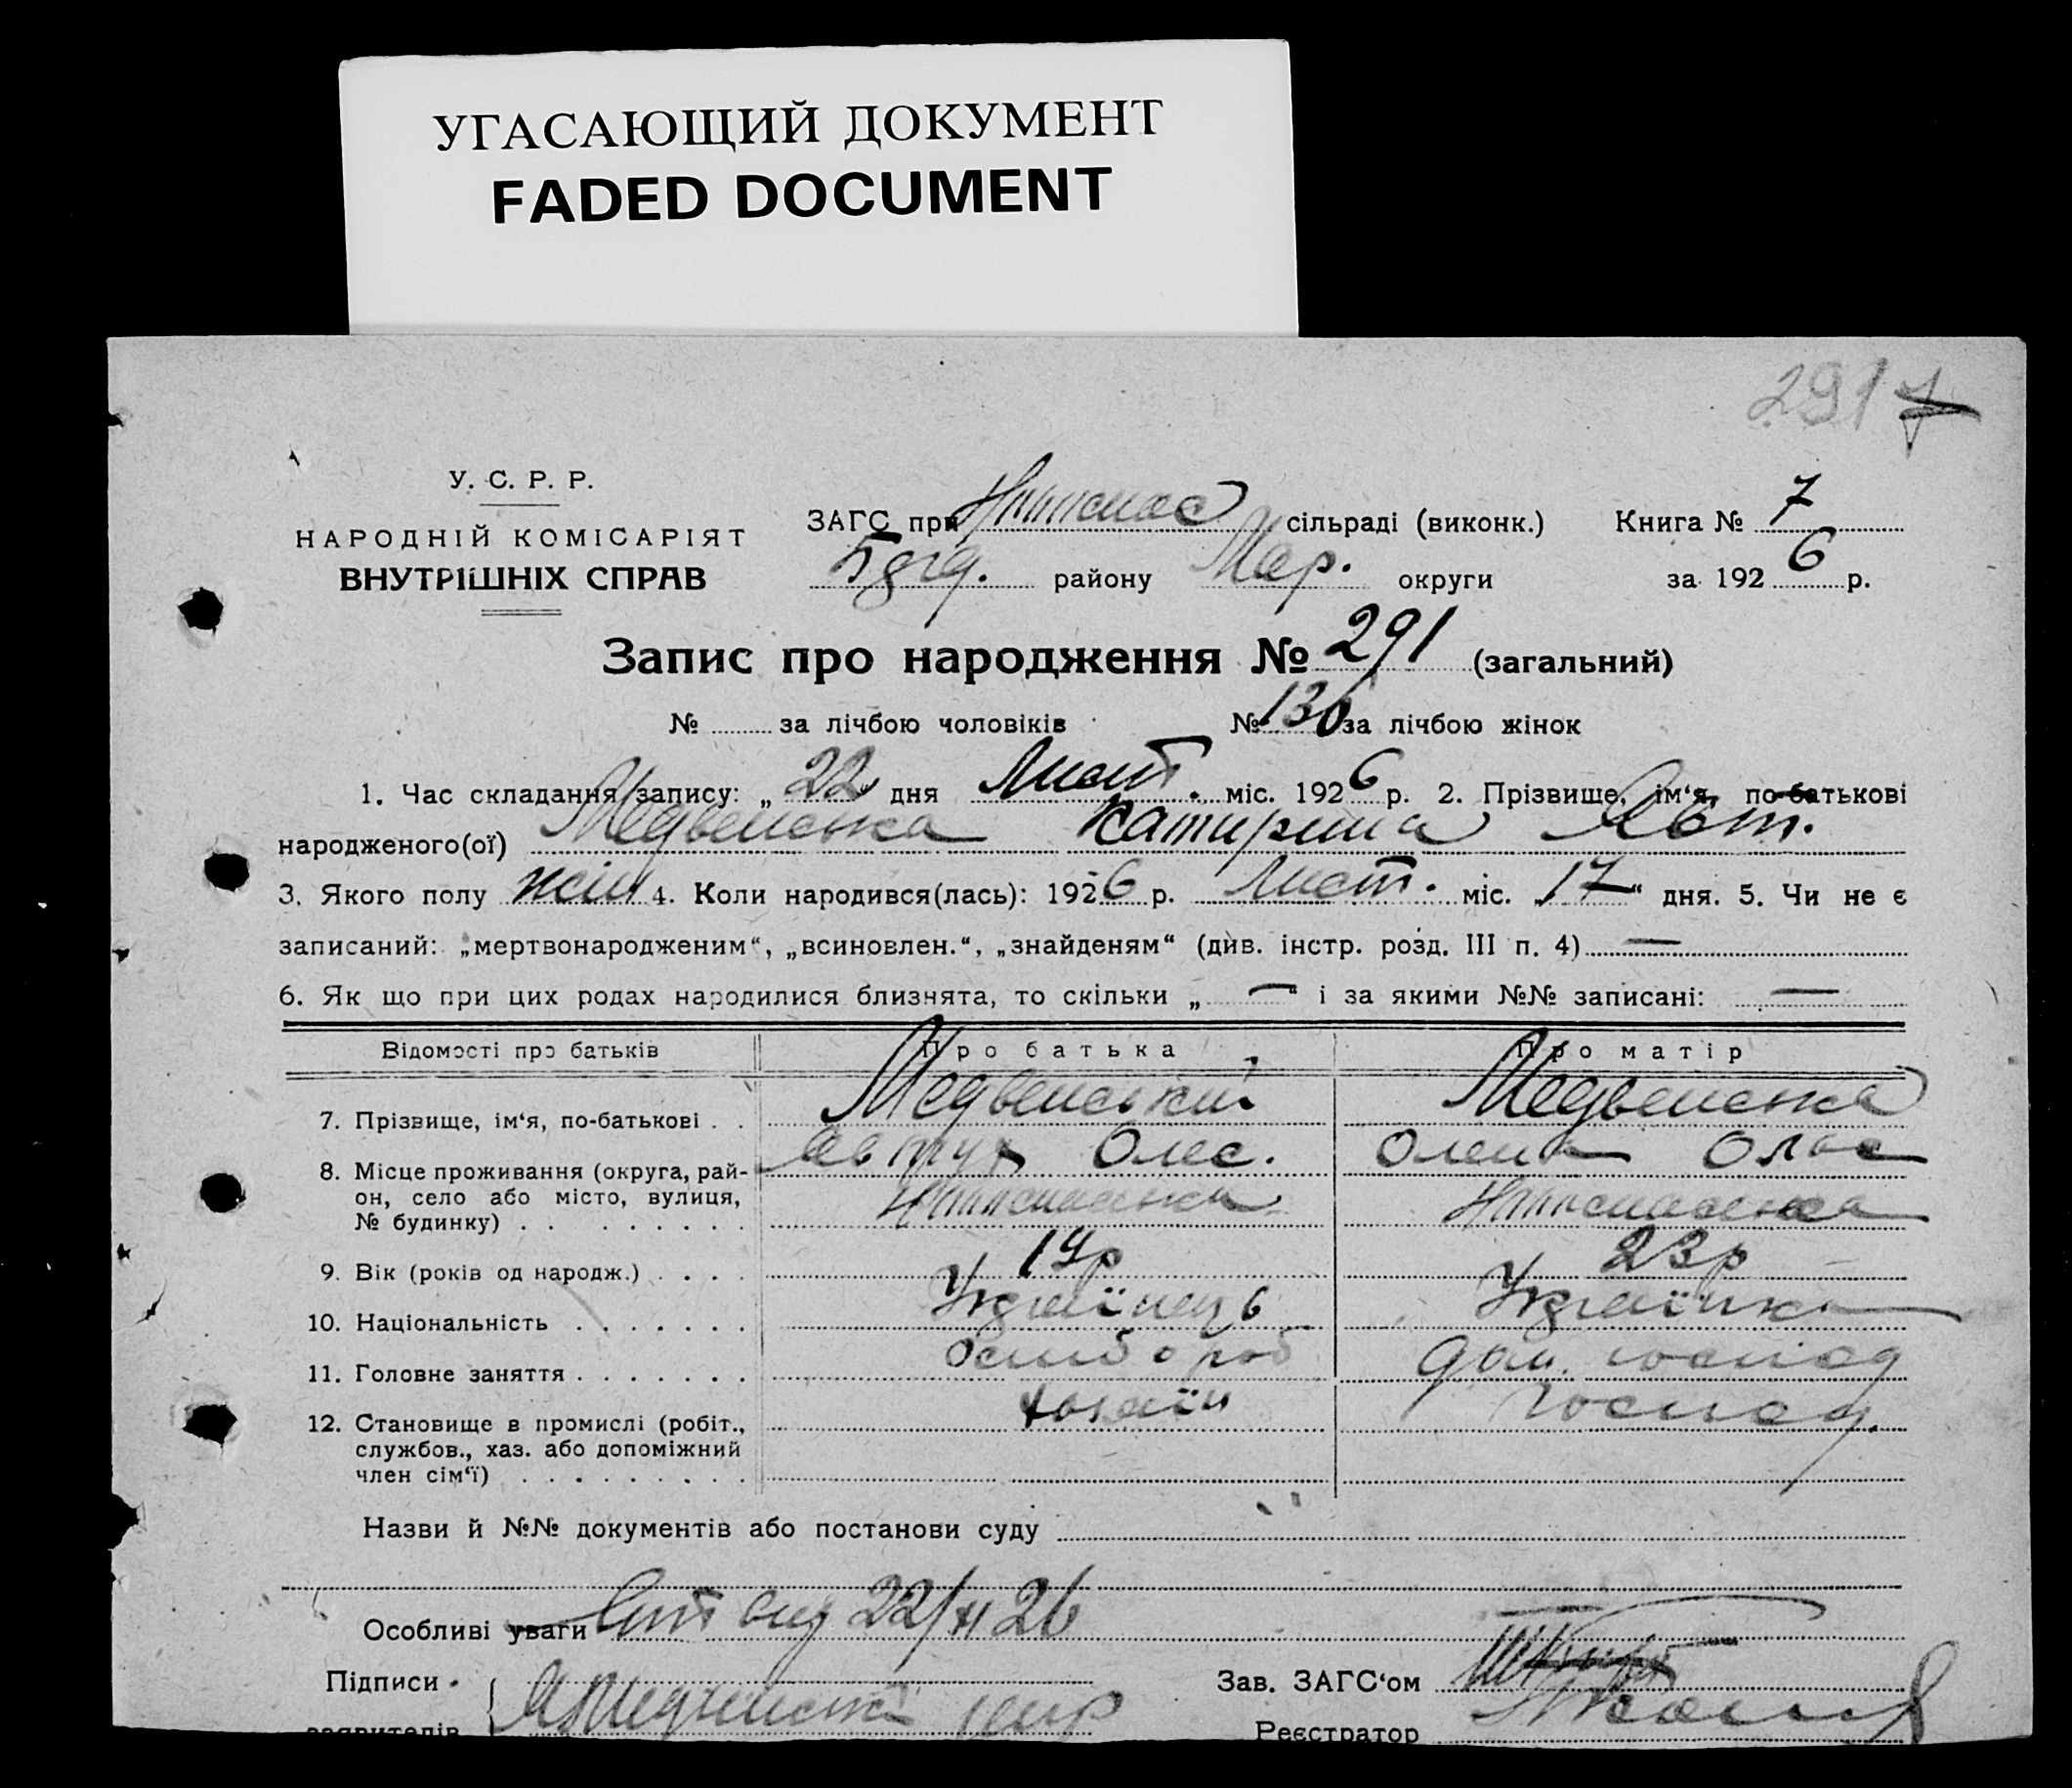 УГАСАЮЩИЙ ДОКУМЕНТ
FADED DOCUMENT
291 7
У. С. Р. Р.
НАРОДНІЙ КОМІСАРІЯТ
ВНУТРІШНІХ СПРАВ
ЗАГС при сільраді (виконк.) Книга № 7
району Мар. округи за 1926 р.
Запис про народження № 291 (загальний)
№ за лічбою чоловіків № 136 за лічбою жінок
1. Час складання запису: „22“ дня Лист. міс. 1926 р. 2. Прізвище, ім‘я, по-батькові
народженого(ої) Медвенська Катирина Явт.
3. Якого полу жін 4. Коли народився(лась): 1926 р. Лист. міс. „17“ дня. 5. Чи не є
записаний: „мертвонародженим“, „всиновлен.“, „знайденям“ (див. інстр. розд. III п. 4) —
6. Як що при цих родах народилися близнята, то скільки „—“ і за якими №№ записані: —
Відомості про батьків Про батька Про матір
7. Прізвище, ім‘я, по-батькові . . Медвенський Медвенська
Явтух Олес. Олена
8. Місце проживання (округа, рай-
он, село або місто, вулиця,
№ будинку) . . . . . . . .
9. Вік (років од народж.) . . . . 19р 23р
10. Національність . . . . . . . Українець Українка
11. Головне заняття . . . . . . . дом. господ
12. Становище в промислі (робіт., хазяїн господ.
службов., хаз. або допоміжний
член сім‘ї) . . . . . . . . .
Назви й №№ документів або постанови суду
Особливі уваги 22/XI 26
Підписи
заявителів
Зав. ЗАГС‘ом
Реєстратор